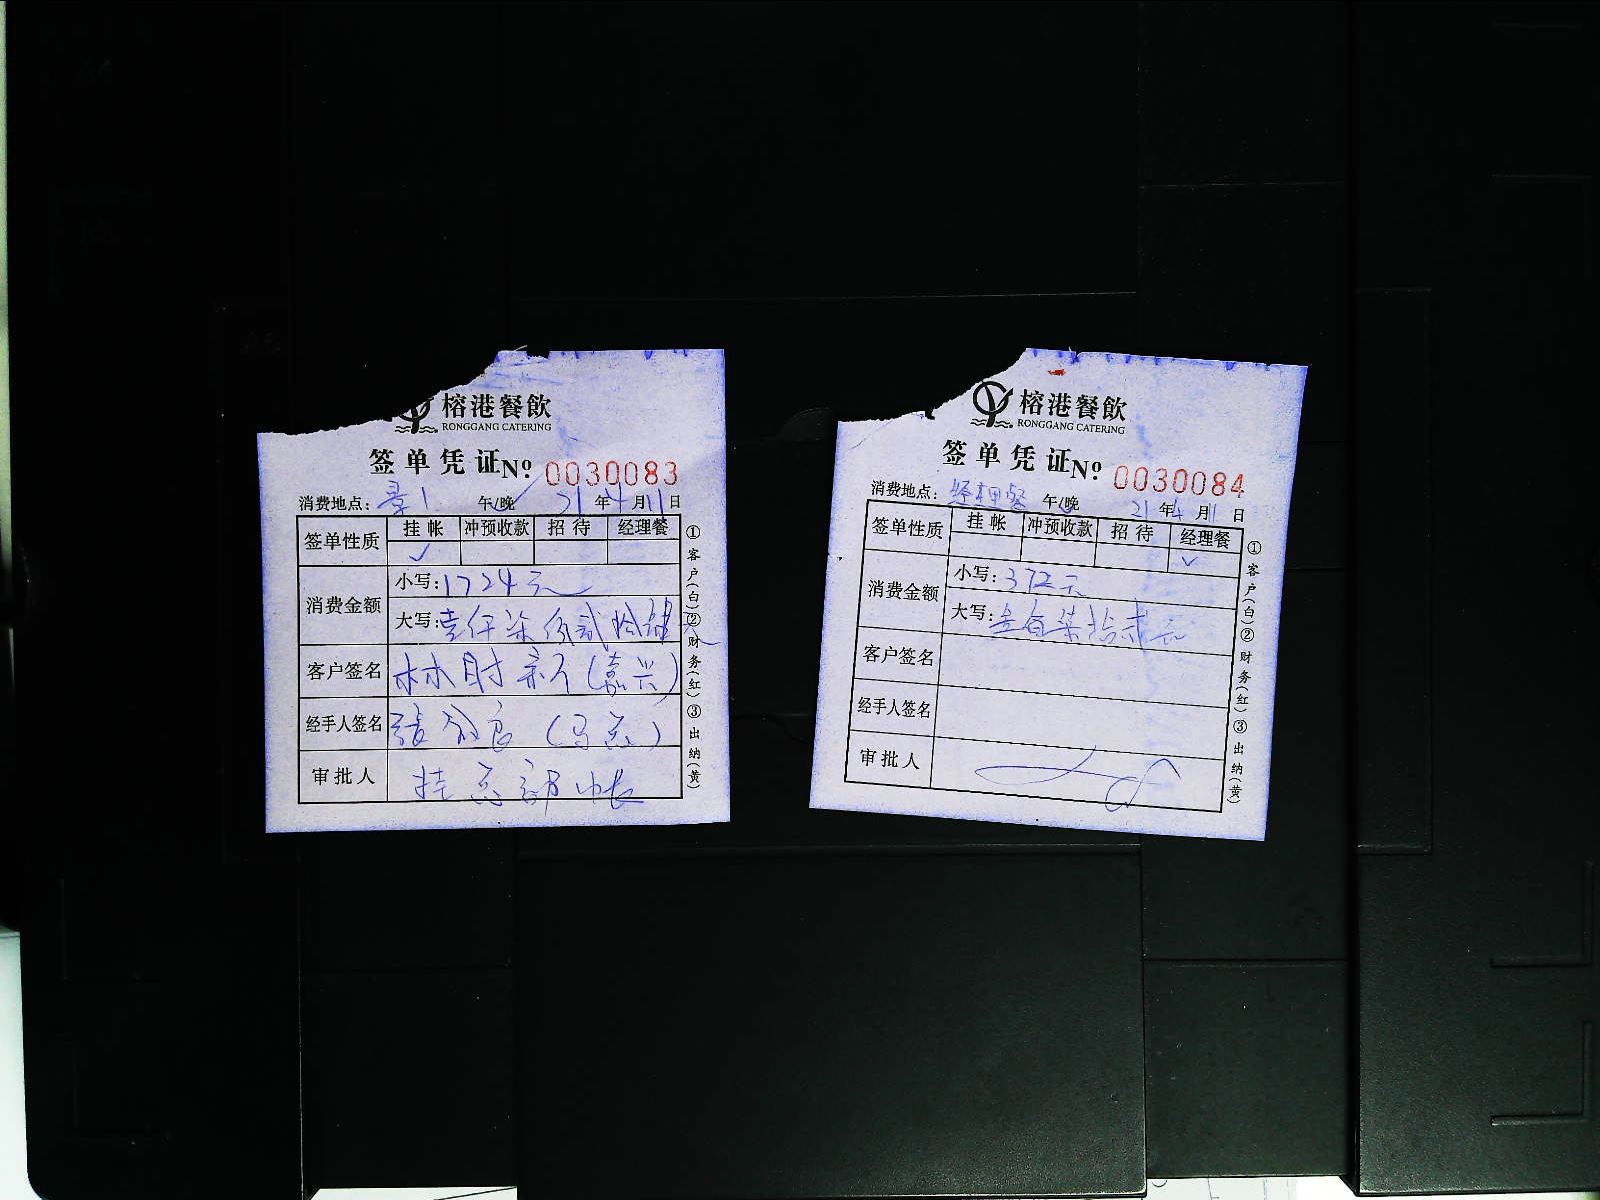 榕港餐飲
RONGGANG CATERING
签单凭证№ 0030083
消费地点： 午/晚 21年4月11日
签单性质 挂帐 冲预收款 招待 经理餐
✓
消费金额 小写：1724元
大写：壹仟柒佰贰拾肆元
客户签名 林财(嘉兴)
经手人签名 張
审批人 挂总部帐
①客户(白)②财务(红)③出纳(黄)
榕港餐飲
RONGGANG CATERING
签单凭证№ 0030084
消费地点：经理餐 午/晚 21年4月11日
签单性质 挂帐 冲预收款 招待 经理餐
✓
消费金额 小写：372元
大写：叁百柒拾贰元
客户签名
经手人签名
审批人
①客户(白)②财务(红)③出纳(黄)